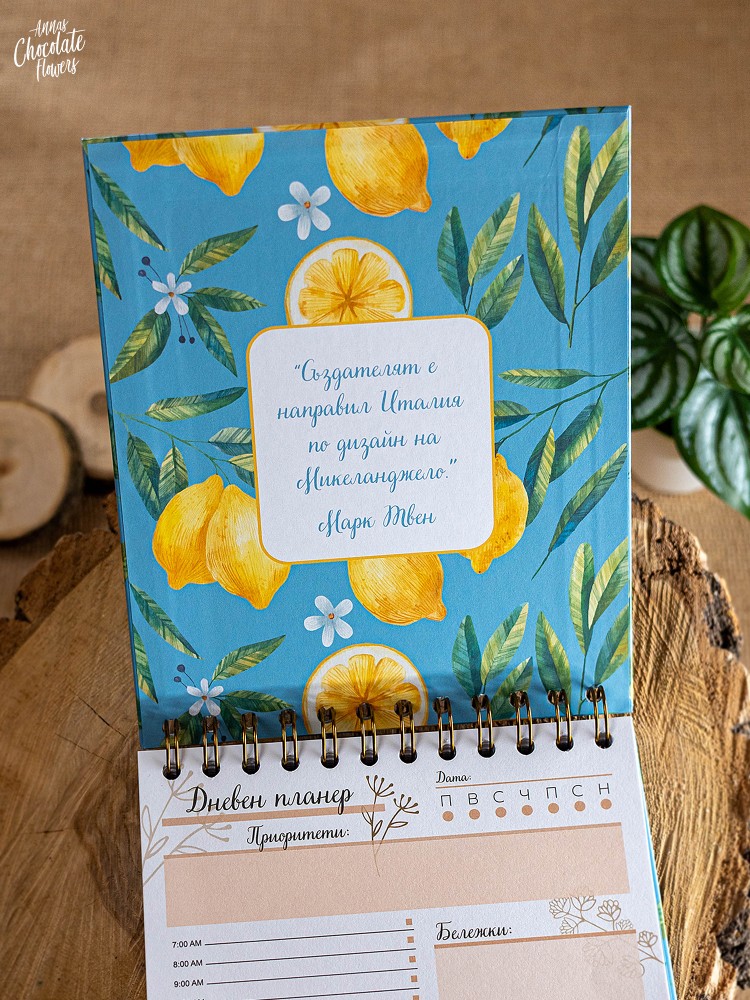 Annas
Chocolate
flowers
“Създателят е
направил Италия
по дизайн на
Микеланджело.”
Марк Твен
Дневен планер
Дата:
П В С Ч П С Н
Приоритети:
7:00 AM
8:00 AM
9:00 AM
Бележки: